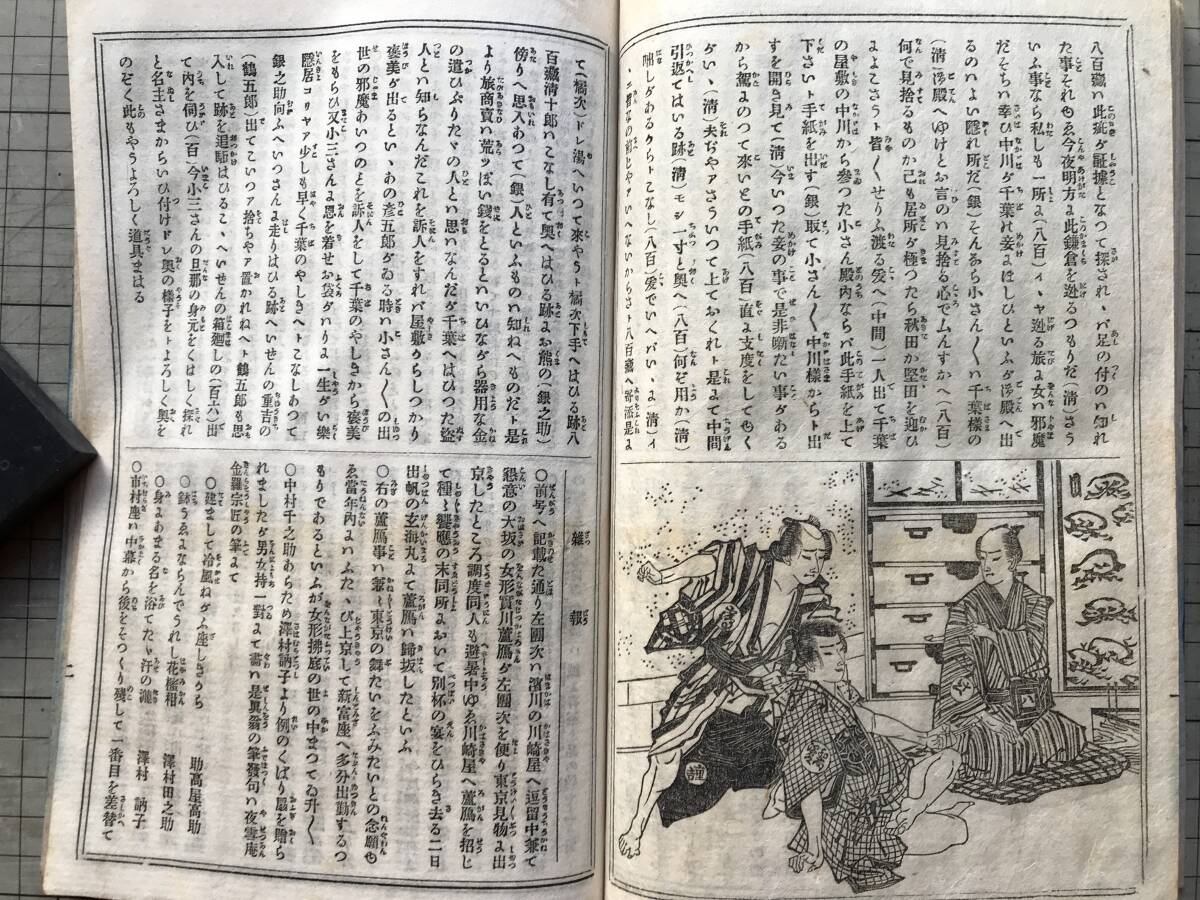 八百蔵ハ此疵が証拠となつて探されゝバ足の付のハ知れ
た事それゆゑ今夜明方に此鎌倉を逊るつもりだ(清)さう
いふ事なら私しも一所よ(八百)イヽヤ逊る旅よ女ハ邪魔
だそちハ幸ひ中川が千葉へ妾よほしひといふが浮殿へ出
るのハよい隠れ所だ(銀)そんなら小さん〳〵ハ千葉様の
(清)浮殿へゆけとお言のハ見捨る心でムんすかへ(八百)
何で見捨るものか己も居所が極つたら秋田か堅田を迎ひ
よよこさうト皆〳〵せりふ渡る爰へ(中間)一人出て千葉
の屋敷の中川から参つた小さん殿内ならバ此手紙を上て
下さいト手紙を出す(銀)取て小さん〳〵中川様からト出
すを開き見て(清)今いつた妾の事で是非噺たい事がある
から駕よのつて來いとの手紙(八百)直よ支度をしてゆく
がいゝ(清)夫ぢやアさういつて上ておくれト是よて中間
引返てはいる跡(清)モシ一寸と奥へ(八百)何ぞ用か(清)
咄しがあるからトこなし(八百)爰でいへバいゝよ(清)イ
てへ(橘次)ドレ湯へいつて來やうト橘次下手へはひる跡八
百蔵清十郎ハこなし有て奥へはひる跡よお熊の(銀之助)
傍りへ思入あつて(銀)人といふものハ知ねへものだト是
より旅商賣ハ荒ツぽい錢をとるとハいひながら器用な金
の遣ひぶりたゞの人とハ思ハなんだが千葉へはひつた盗
人とハ知らなんだこれを訴人をすれバ屋敷からしつかり
褒美が出るといゝあの彦五郎がゐる時ハ小さん〳〵の出
世の邪魔あいつのことを訴人して千葉のやしきから褒美
をもらひ又小三さんよ恩を着せお袋がハりよ一生がい樂
隠居コリヤア少しも早く千葉のやしきへトこなしあつて
銀之助向ふへいつさんよ走りはひる跡へいせんの重吉の
(鶴五郎)出てこいつア捨ちやア置かれねへト鶴五郎も思
入して跡を追駈はひるこゝへいせんの箱廻しの(百六)出
て内を伺ひ(百)今小三さんの旦那の身元をくはしく探れ
と名主さまからいひ付けドレ奥の樣子をトよろしく奥を
のぞく此もやうよろしく道具まはる
雜報
○前号へ記載た通り左團次ハ濱川の川崎屋へ逗留中兼て
懇意の大坂の女形實川蘆鴈が左團次を便り東京見物よ出
京したところ調度同人も避暑中ゆゑ川崎屋へ蘆鴈を招じ
て種〻饗應の末同所よおいて別杯の宴をひらき去る二日
出帆の玄海丸よて蘆鴈ハ歸坂したといふ
○右の蘆鴈事ハ兼〻東京の舞たいをふみたいとの念願ゆ
ゑ當年内よハふたゝび上京して新富座へ多分出勤するつ
もりであるといふが女形拂底の世の中まつてゐ升〳〵
○中村千之助あらため澤村訥子より例のくばり扇を贈ら
れましたが男女持一對よて畵ハ是眞翁の筆發句ハ夜雪庵
金羅宗匠の筆よて
○建まして冷風ねがふ座しきから 助高屋高助
○鉢うゑよならんでうれし花欄柑 澤村田之助
○身よあまる名を浴てたゝ汗の瀧 澤村訥子
○市村座ハ中幕から後をそつくり殘して一番目を差替て
二